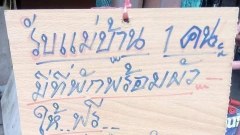 รับแม่บ้าน 1 คนฺะ
มีที่พักพร้อมผัว
ให้..ฟรี...